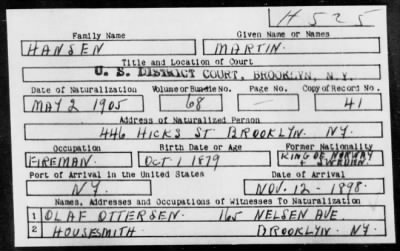 H525
Family Name Given Name or Names
HANSEN MARTIN.
Title and Location of Court
U. S. DISTRICT COURT, BROOKLYN, N.Y.
Date of Naturalization Volume or Bundle No. Page No. Copy of Record No.
MAY 2 1905 68 - 41
Address of Naturalized Person
446 HICKS ST BROOKLYN. NY.
Occupation Birth Date or Age Former Nationality
FIREMAN. OCT 1 1879 KING OF NORWAY
& SWEDEN.
Port of Arrival in the United States Date of Arrival
N.Y. NOV. 12 - 1898.
Names, Addresses and Occupations of Witnesses To Naturalization
1 OLAF OTTERSEN. 165 NELSEN AVE
2 HOUSESMITH BROOKLYN. N.Y.